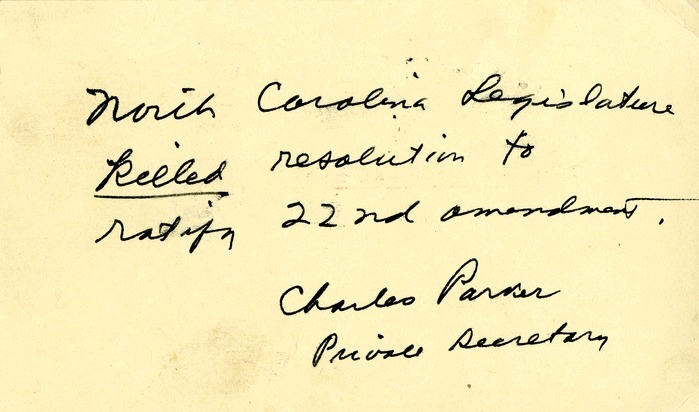 North Carolina Legislature
killed resolution to
ratify 22nd amendment.
Charles Parker
Private Secretary